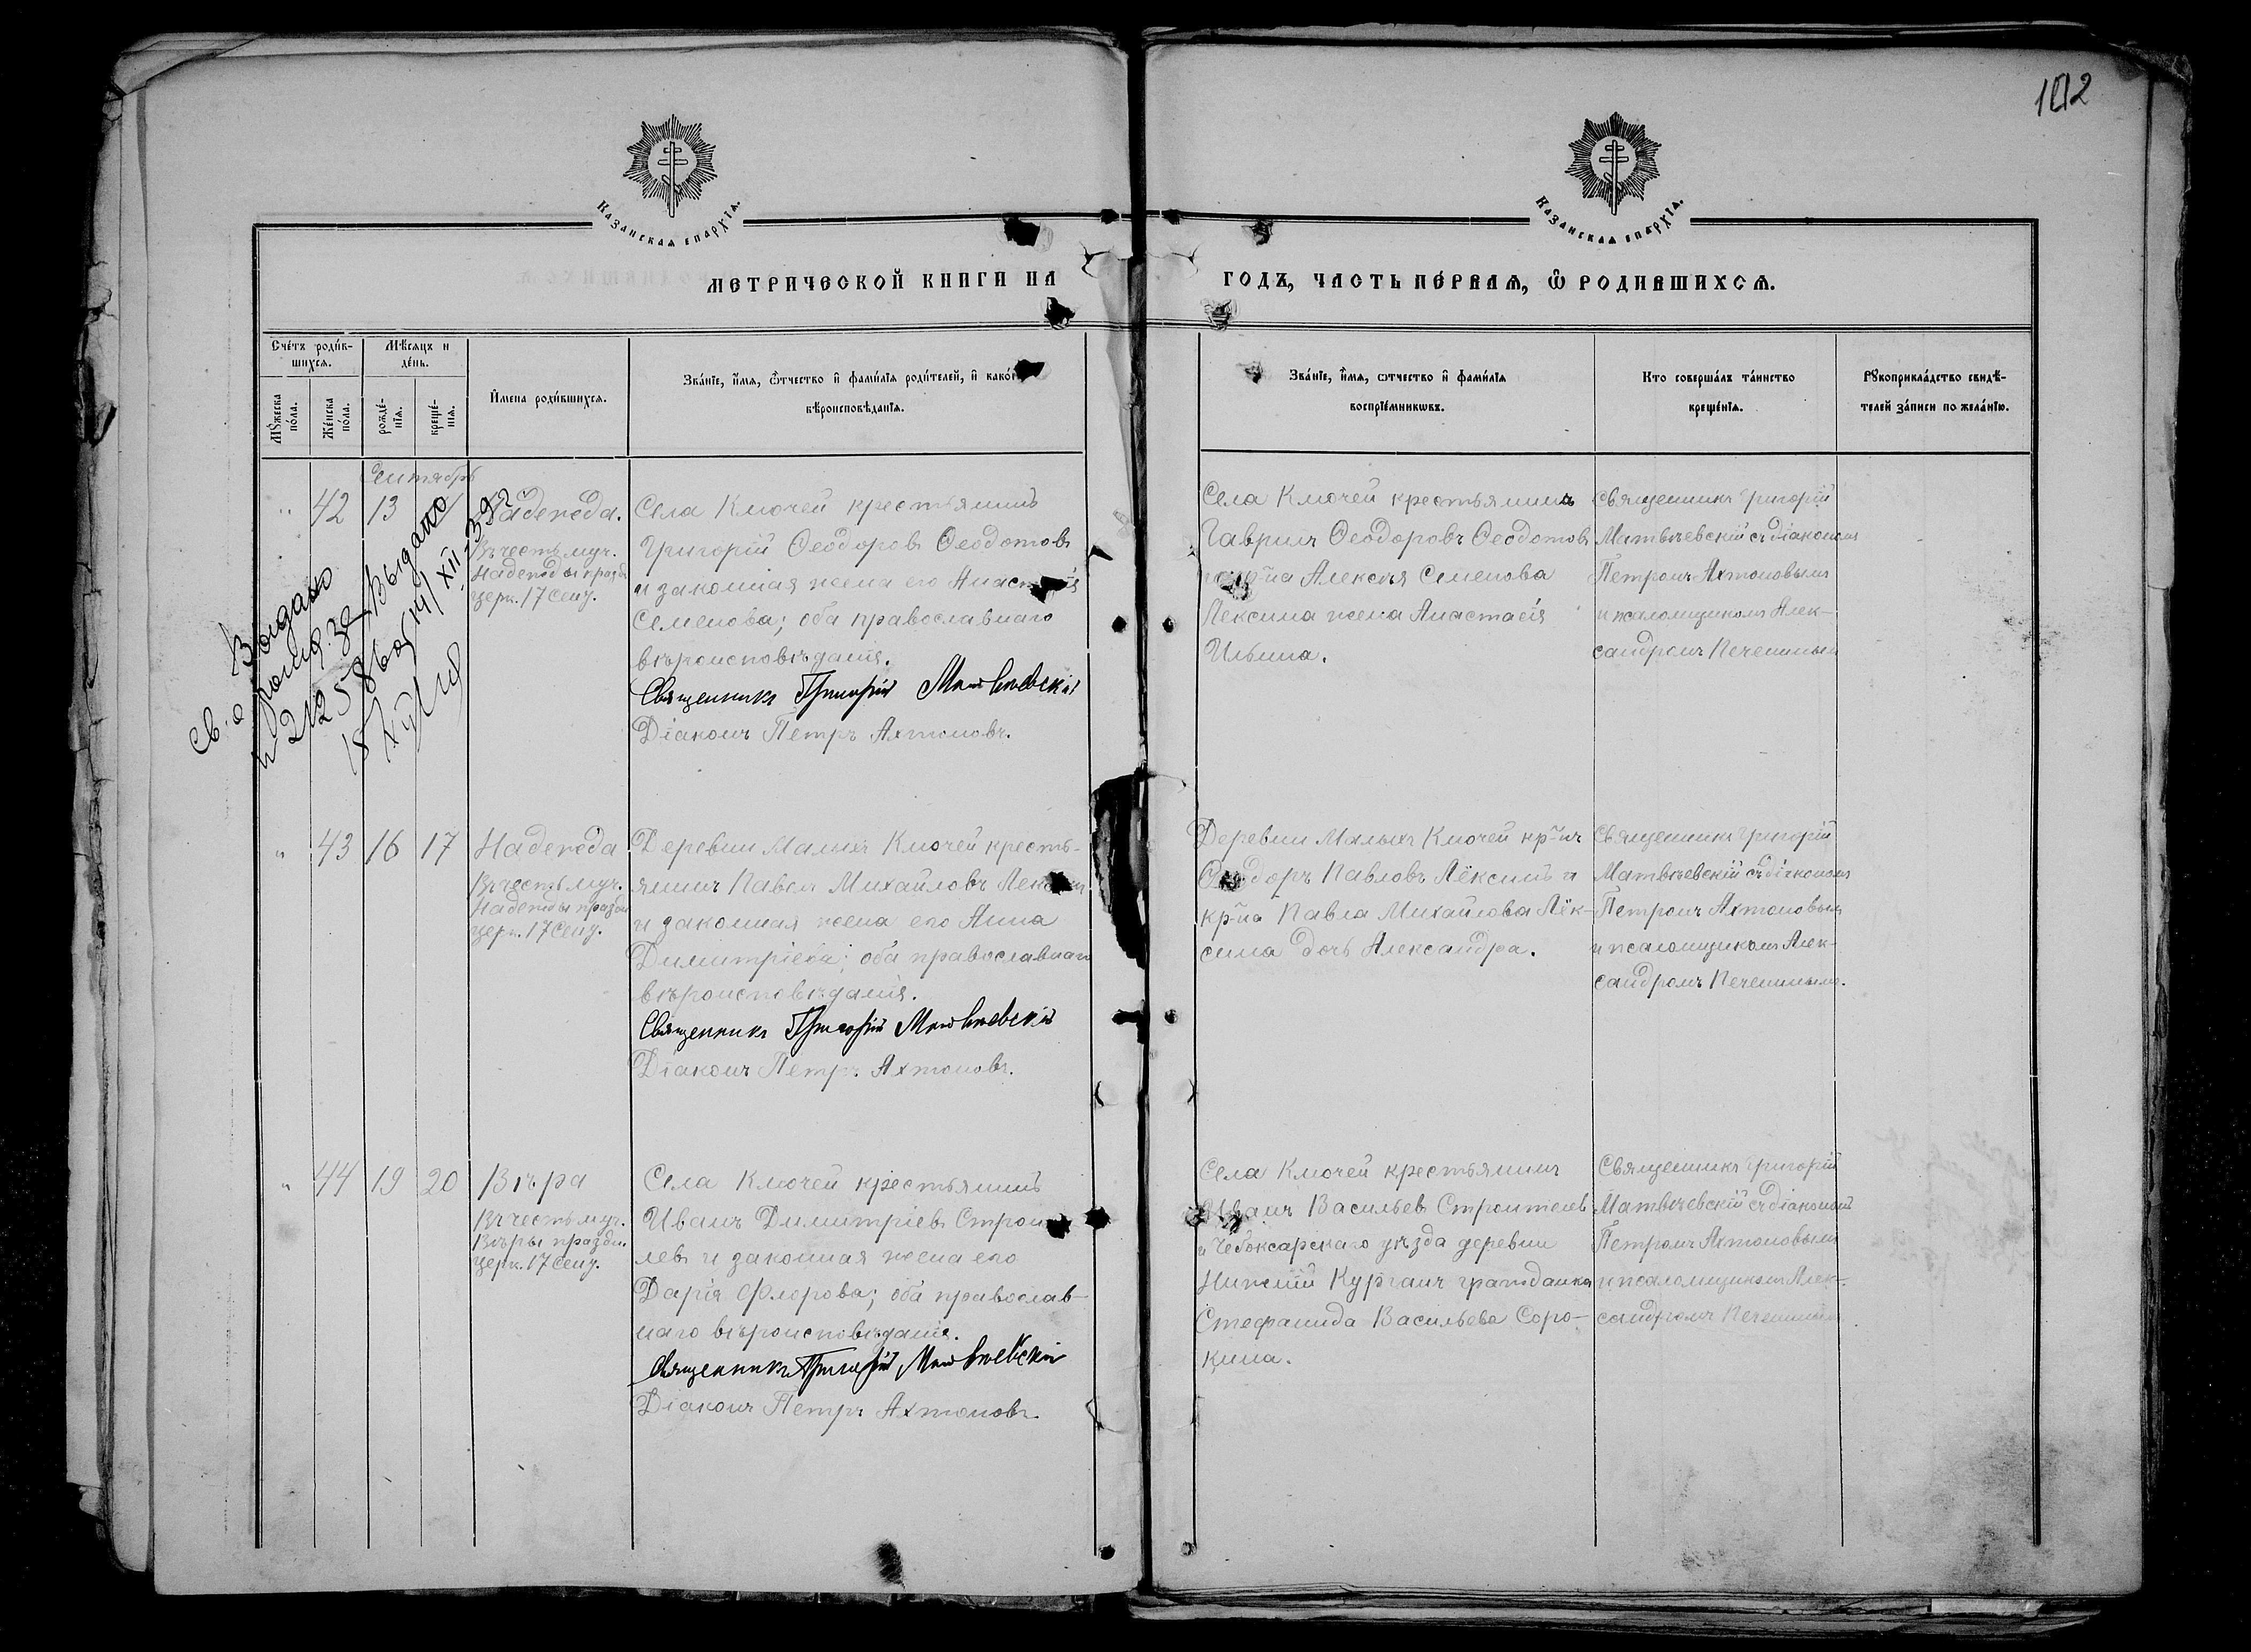 102
Казанская епархїѧ.
Казанская епархїѧ.
МЕТРИЧЕСКОЙ КНИГИ НА
ГОДЪ, ЧАСТЬ ПЕ́РВАѦ, Ѡ҆ РОДИВШИХСѦ.
Сче́тъ роди́в-
шихсѧ.
Мѣ́сяцъ и
де́нь.
Мꙋ́жеска
по́ла.
Же́нска
по́ла.
рожде́-
нїѧ.
креще́-
нїѧ.
И҆мена роди́вшихсѧ.
Зва́нїе, и҆́мѧ, ѻ҆́тчество и҆ фами́лїѧ роди́телей, и҆ како́
вѣроисповѣ́данїѧ.
Зва́нїе, и҆́мѧ, ѻ҆́тчество и҆ фами́лїѧ
воспрїе́мникѡвъ.
Кто соверша́лъ та́инство
креще́нїѧ.
Рꙋкоприкла́дство свидѣ́-
телей за́писи по жела́нїю.
Сентябрь
42 13
Надежда.
Въ честь муч.
Надежды праздн.
церк. 17 Сент.
Села Ключей крестьянинъ
Григорій Ѳеодоровъ Ѳеодотовъ
и законная жена его Анастасія
Семенова; оба православнаго
вѣроисповѣданія.
Священникъ Григорій Матвѣевскій
Діаконъ Петръ Ахтоновъ.
Села Ключей крестьянинъ
Гавриилъ Ѳеодоровъ Ѳеодотовъ
кр-на Алексѣя Семенова
Лексина жена Анастасія
Ильина.
Священникъ Григорій
Матвѣевскій съ діакономъ
Петромъ Ахтоновымъ
и псаломщикомъ Алек-
сандромъ Печенинымъ
Выдано
Выдано
" 43 16 17
Надежда
Въ честь муч.
Надежды праздн.
церк. 17 Сент.
Деревни Малыхъ Ключей кресть-
янинъ Павелъ Михайловъ Лексинъ
и законная жена его Анна
Димитріева; оба православнаго
вѣроисповѣданія.
Священникъ Григорій Матвѣевскій
Діаконъ Петръ Ахтоновъ.
Деревни Малыхъ Ключей кр-нъ
Ѳеодоръ Павловъ Лёксинъ и
кр-на Павла Михайлова Лёк-
сина дочь Александра.
Священникъ Григорій
Матвѣевскій съ діакономъ
Петромъ Ахтоновымъ
и псаломщикомъ Алек-
сандромъ Печенинымъ.
" 44 19 20
Вѣра
Въ честь муч.
Вѣры праздн.
церк. 17 Сент.
Села Ключей крестьянинъ
Иванъ Димитріевъ Строите-
левъ и законная жена его
Дарія Флорова; оба православ-
наго вѣроисповѣданія.
Священникъ Григорій Матвѣевскій
Діаконъ Петръ Ахтоновъ.
Села Ключей крестьянинъ
Иванъ Васильевъ Строителевъ
и Чебоксарскаго уѣзда деревни
Нижній Курганъ гражданка
Стефанида Васильева Соро-
кина.
Священникъ Григорій
Матвѣевскій съ діакономъ
Петромъ Ахтоновымъ
и псаломщикомъ Алек-
сандромъ Печенинымъ